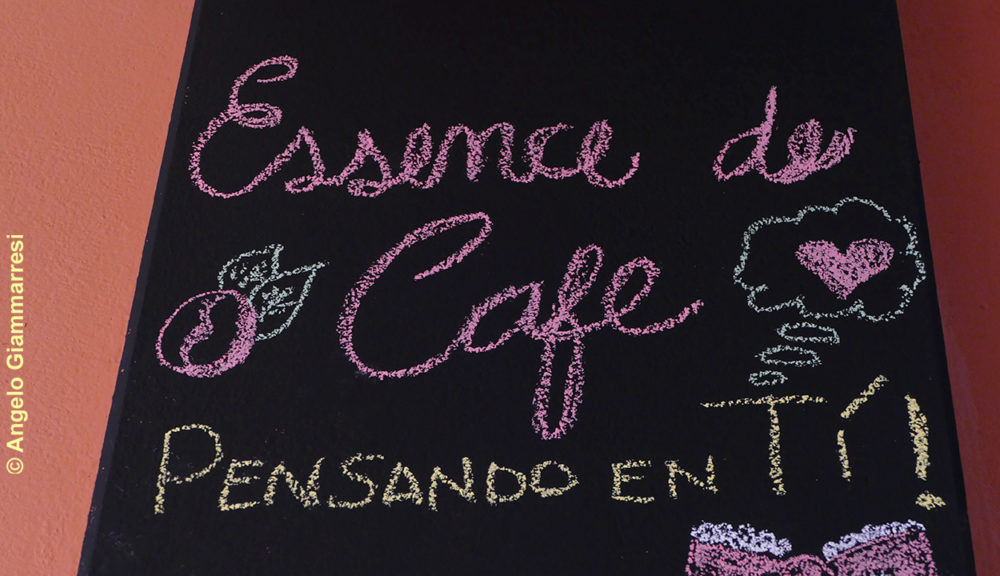 Essence de
Cafe
PENSANDO EN TÍ!
© Angelo Giammarresi